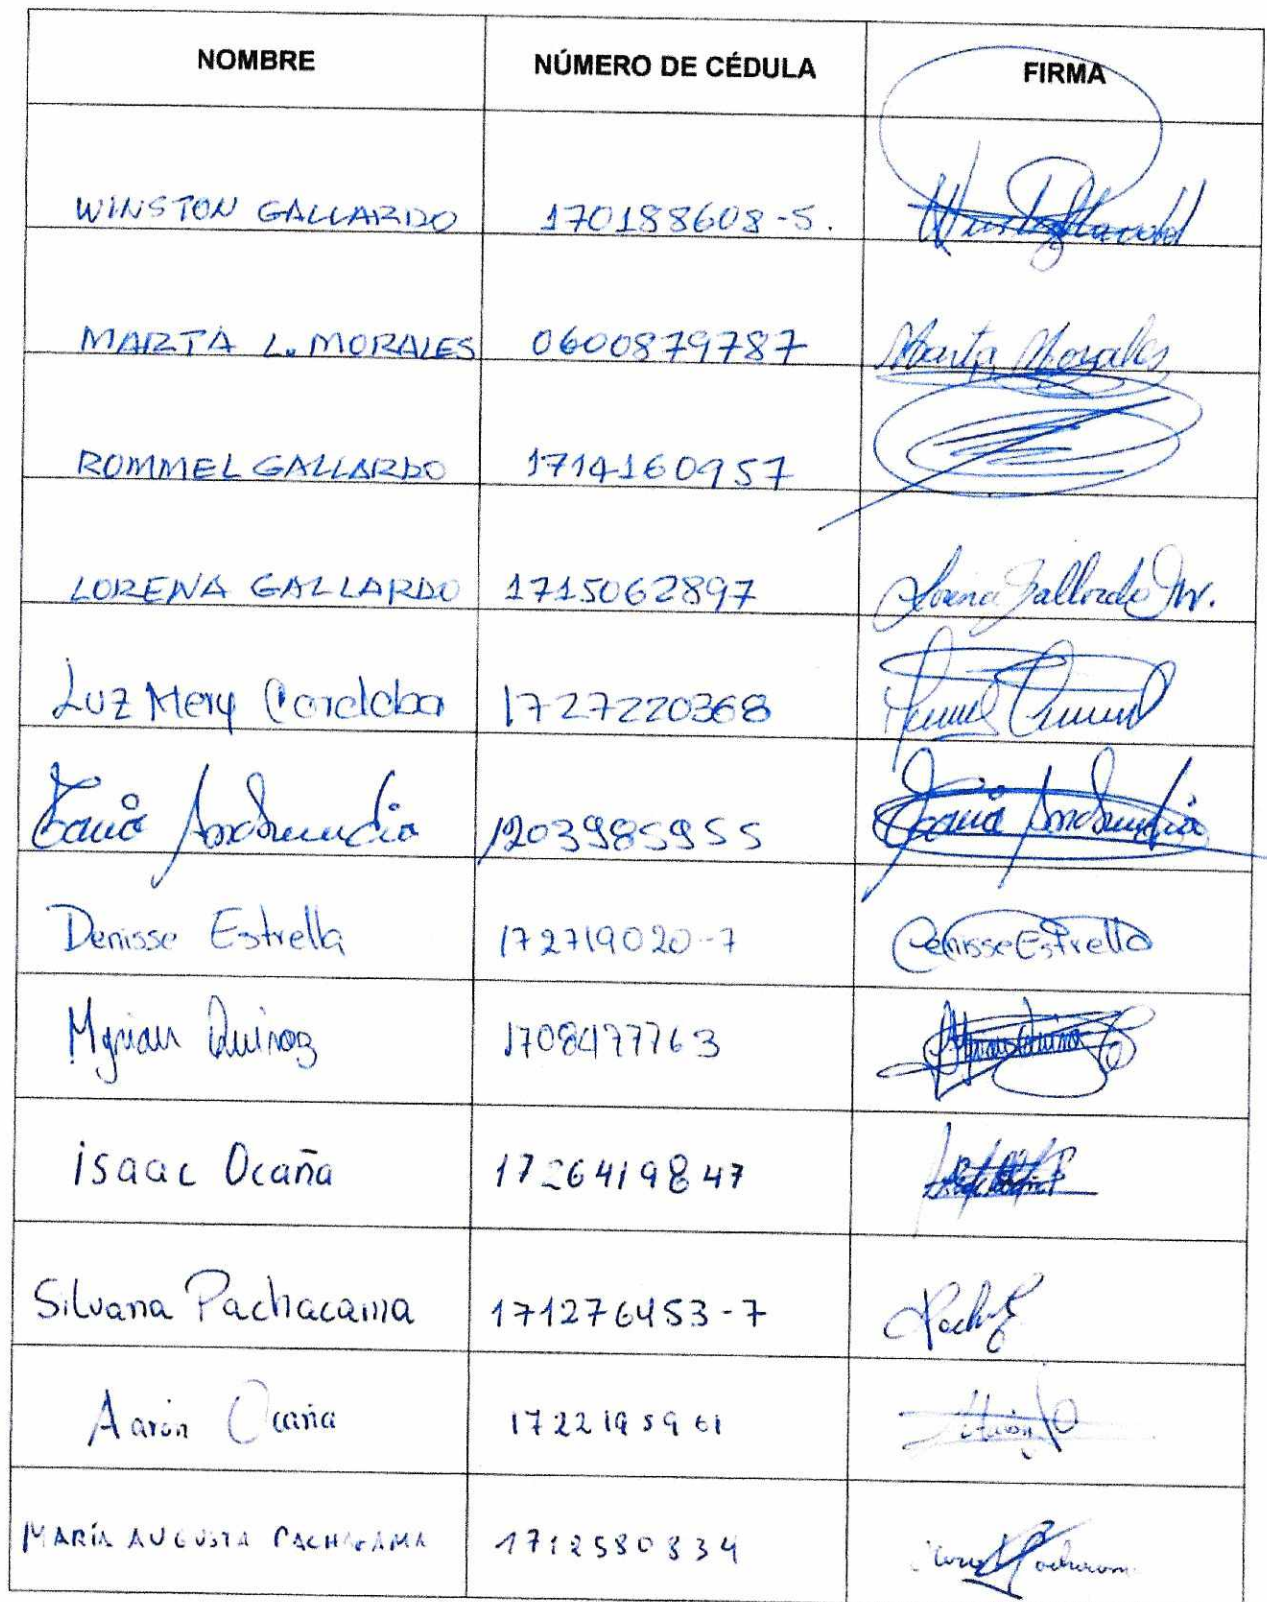 NOMBRE NÚMERO DE CÉDULA FIRMA
WINSTON GALLARDO 170188608-5.
MARTA L. MORALES 0600879787 Marta Morales
ROMMEL GALLARDO 1714160957
LORENA GALLARDO 1715062897 Lorena Gallardo
Luz Mery Cordoba 1727220368
Tania 1203985955 Tania
Denisse Estrella 172719020-7 Denisse Estrella
Myrian Quiroz 1708477763
isaac Ocaña 1726419847
Silvana Pachacama 171276453-7
Aarón Ocaña 1722195961
MARÍA AUGUSTA PACHACAMA 1712580834